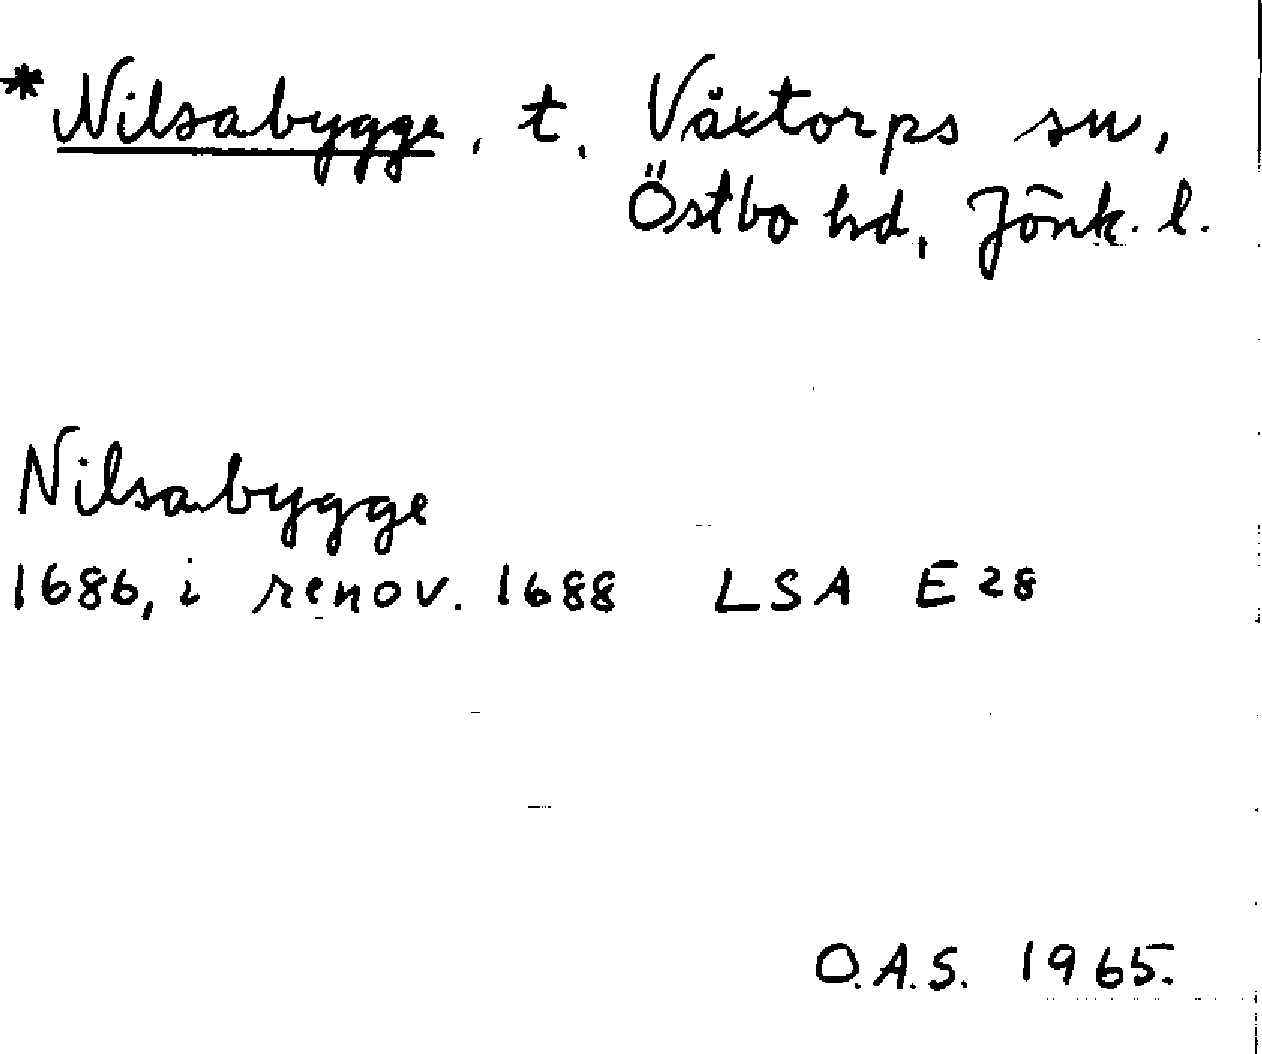 *Nilsabygge, t. Växtorps sn,
Östbo hd, Jönk. l.
Nilsabygge
1686, i renov. 1688 LSA E 28
O.A.S. 1965.